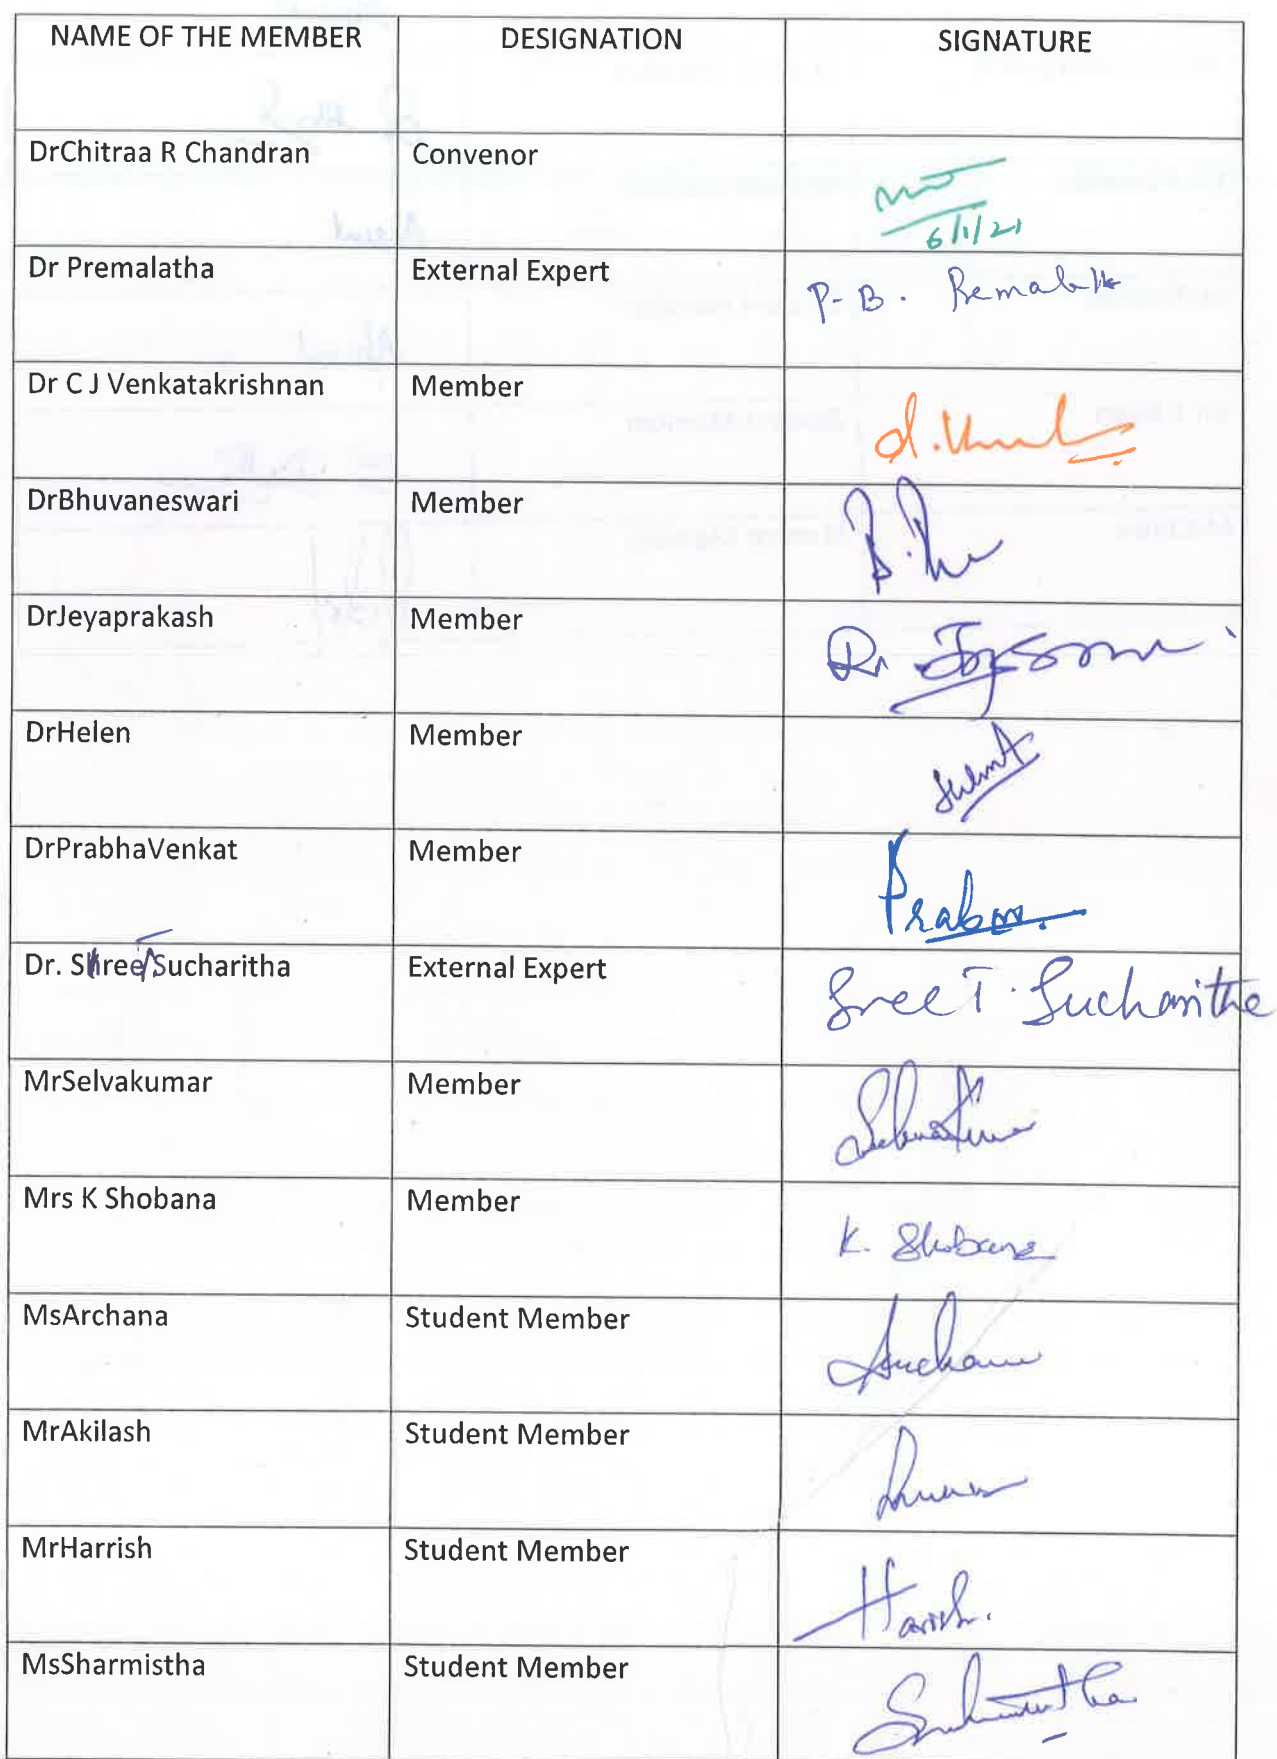 NAME OF THE MEMBER DESIGNATION SIGNATURE
DrChitraa R Chandran Convenor
6/1/21
Dr Premalatha External Expert P. B. Premalatha
Dr C J Venkatakrishnan Member
DrBhuvaneswari Member
DrJeyaprakash Member Dr
DrHelen Member
DrPrabhaVenkat Member Prabha
Dr. Shree Sucharitha External Expert Sree T. Sucharitha
MrSelvakumar Member Selvakumar
Mrs K Shobana Member K. Shobana
MsArchana Student Member Archana
MrAkilash Student Member
MrHarrish Student Member Harish.
MsSharmistha Student Member